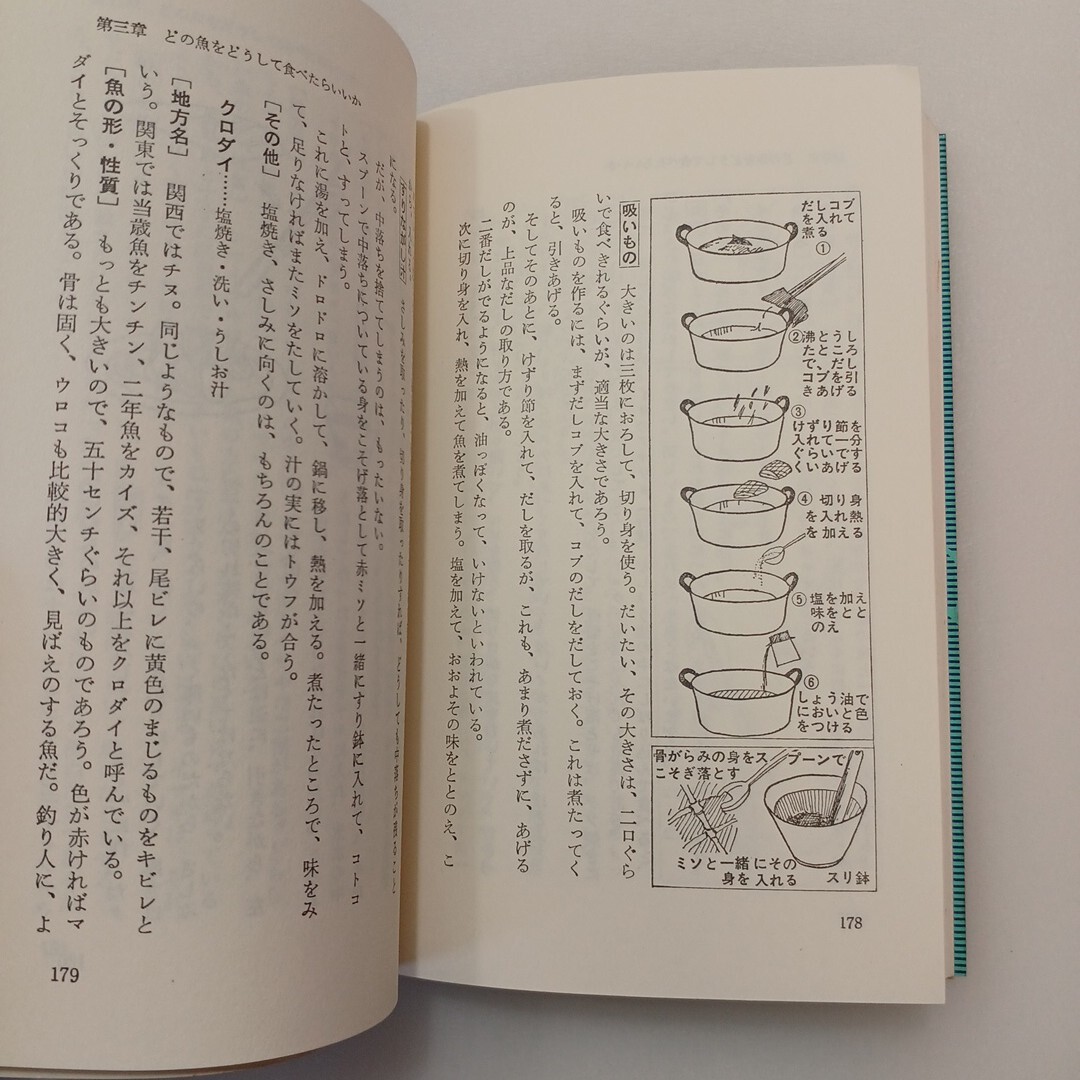 ダシコブを入れて煮る ①
② 沸とうしたところで、コブだしを引きあげる
③ けずり節を入れて一分ぐらいであげる
④ 切り身を入れ熱を加える
⑤ 塩を加え味をととのえ
⑥ しょう油でにおいと色をつける
骨がらみの身をスプーンでこそぎ落とす
ミソと一緒にその身を入れる
スリ鉢
吸いもの 大きいのは三枚におろして、切り身を使う。だいたい、その大きさは、二口ぐら
いで食べきれるぐらいが、適当な大きさであろう。
吸いものを作るには、まずだしコブを入れて、コブのだしをだしておく。これは煮たってく
ると、引きあげる。
そしてそのあとに、けずり節を入れて、だしを取るが、これも、あまり煮ださずに、あげる
のが、上品なだしの取り方である。
二番だしがでるようになると、油っぽくなって、いけないといわれている。
次に切り身を入れ、熱を加えて魚を煮てしまう。塩を加えて、おおよその味をととのえ、こ
178
第三章 どの魚をどうして食べたらいいか
になる。
すりながし汁 さしみを取ったり、切り身を取ったりすれば、どうしても中落ちが残ること
だが、中落ちを捨ててしまうのは、もったいない。
スプーンで中落ちについている身をこそげ落として赤ミソと一緒にすり鉢に入れて、コトコ
トと、すってしまう。
これに湯を加え、ドロドロに溶かして、鍋に移し、熱を加える。煮たったところで、味をみ
て、足りなければまたミソをたしていく。汁の実にはトウフが合う。
[その他] 塩焼き、さしみに向くのは、もちろんのことである。
クロダイ……塩焼き・洗い・うしお汁
[地方名] 関西ではチヌ。同じようなもので、若干、尾ビレに黄色のまじるものをキビレと
いう。関東では当歳魚をチンチン、二年魚をカイズ、それ以上をクロダイと呼んでいる。
[魚の形・性質] もっとも大きいので、五十センチぐらいのものであろう。色が赤ければマ
ダイとそっくりである。骨は固く、ウロコも比較的大きく、見ばえのする魚だ。釣り人に、よ
179